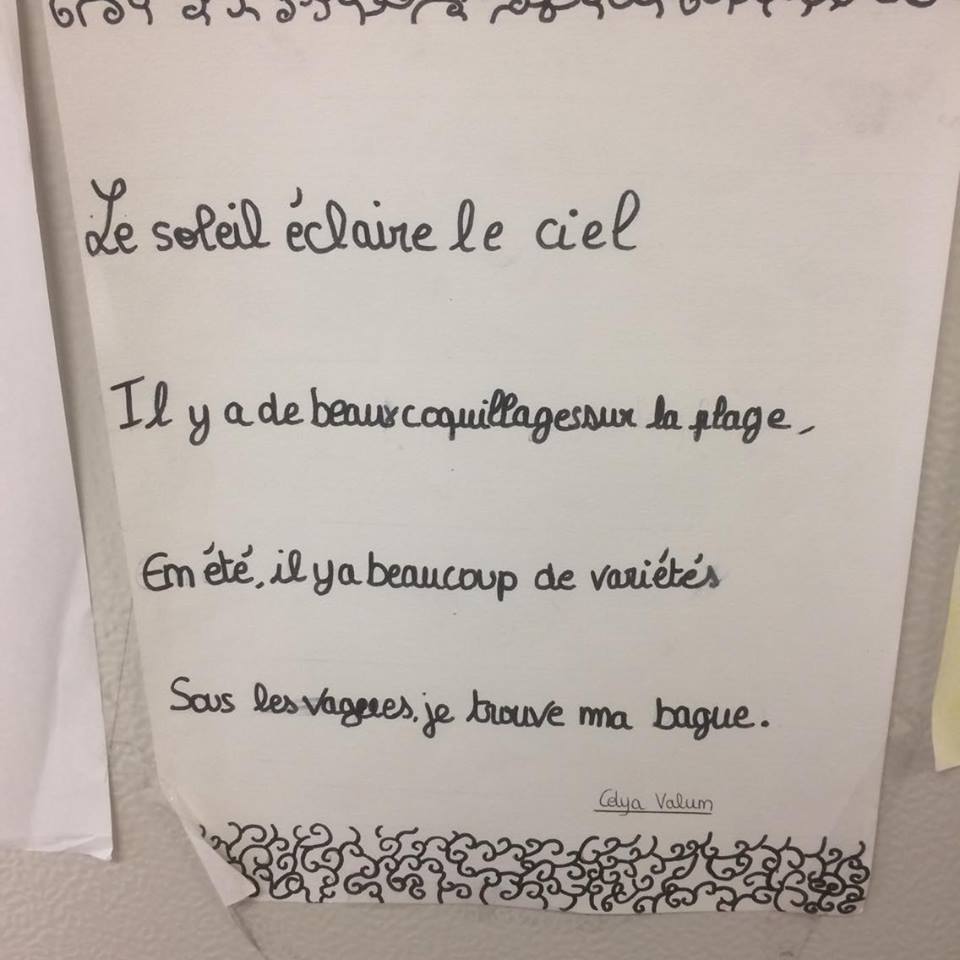 Le soleil éclaire le ciel
Il y a de beaux coquillages sur la plage,
En été, il y a beaucoup de variétés
Sous les vagues, je trouve ma bague.
Celya Valum